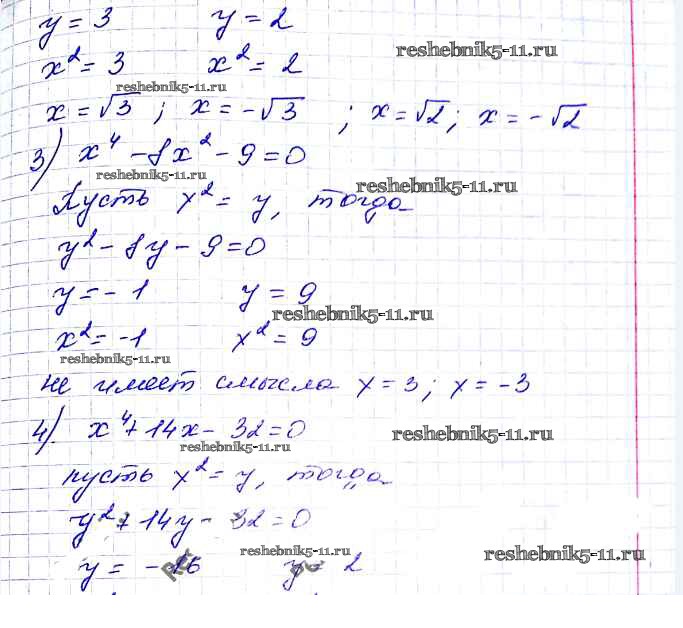 y = 3 y = 2
reshebnik5-11.ru
x² = 3 x² = 2
reshebnik5-11.ru
x = √3 ; x = -√3 ; x = √2 ; x = -√2
3) x⁴ - 8x² - 9 = 0
reshebnik5-11.ru reshebnik5-11.ru
Пусть x² = y, тогда
y² - 8y - 9 = 0
y = - 1 y = 9
reshebnik5-11.ru
x² = -1 x² = 9
reshebnik5-11.ru
не имеет смысла x = 3 ; x = -3
4) x⁴ + 14x - 32 = 0
reshebnik5-11.ru reshebnik5-11.ru
пусть x² = y, тогда
y² + 14y - 32 = 0
reshebnik5-11.ru reshebnik5-11.ru
y = -16 y = 2